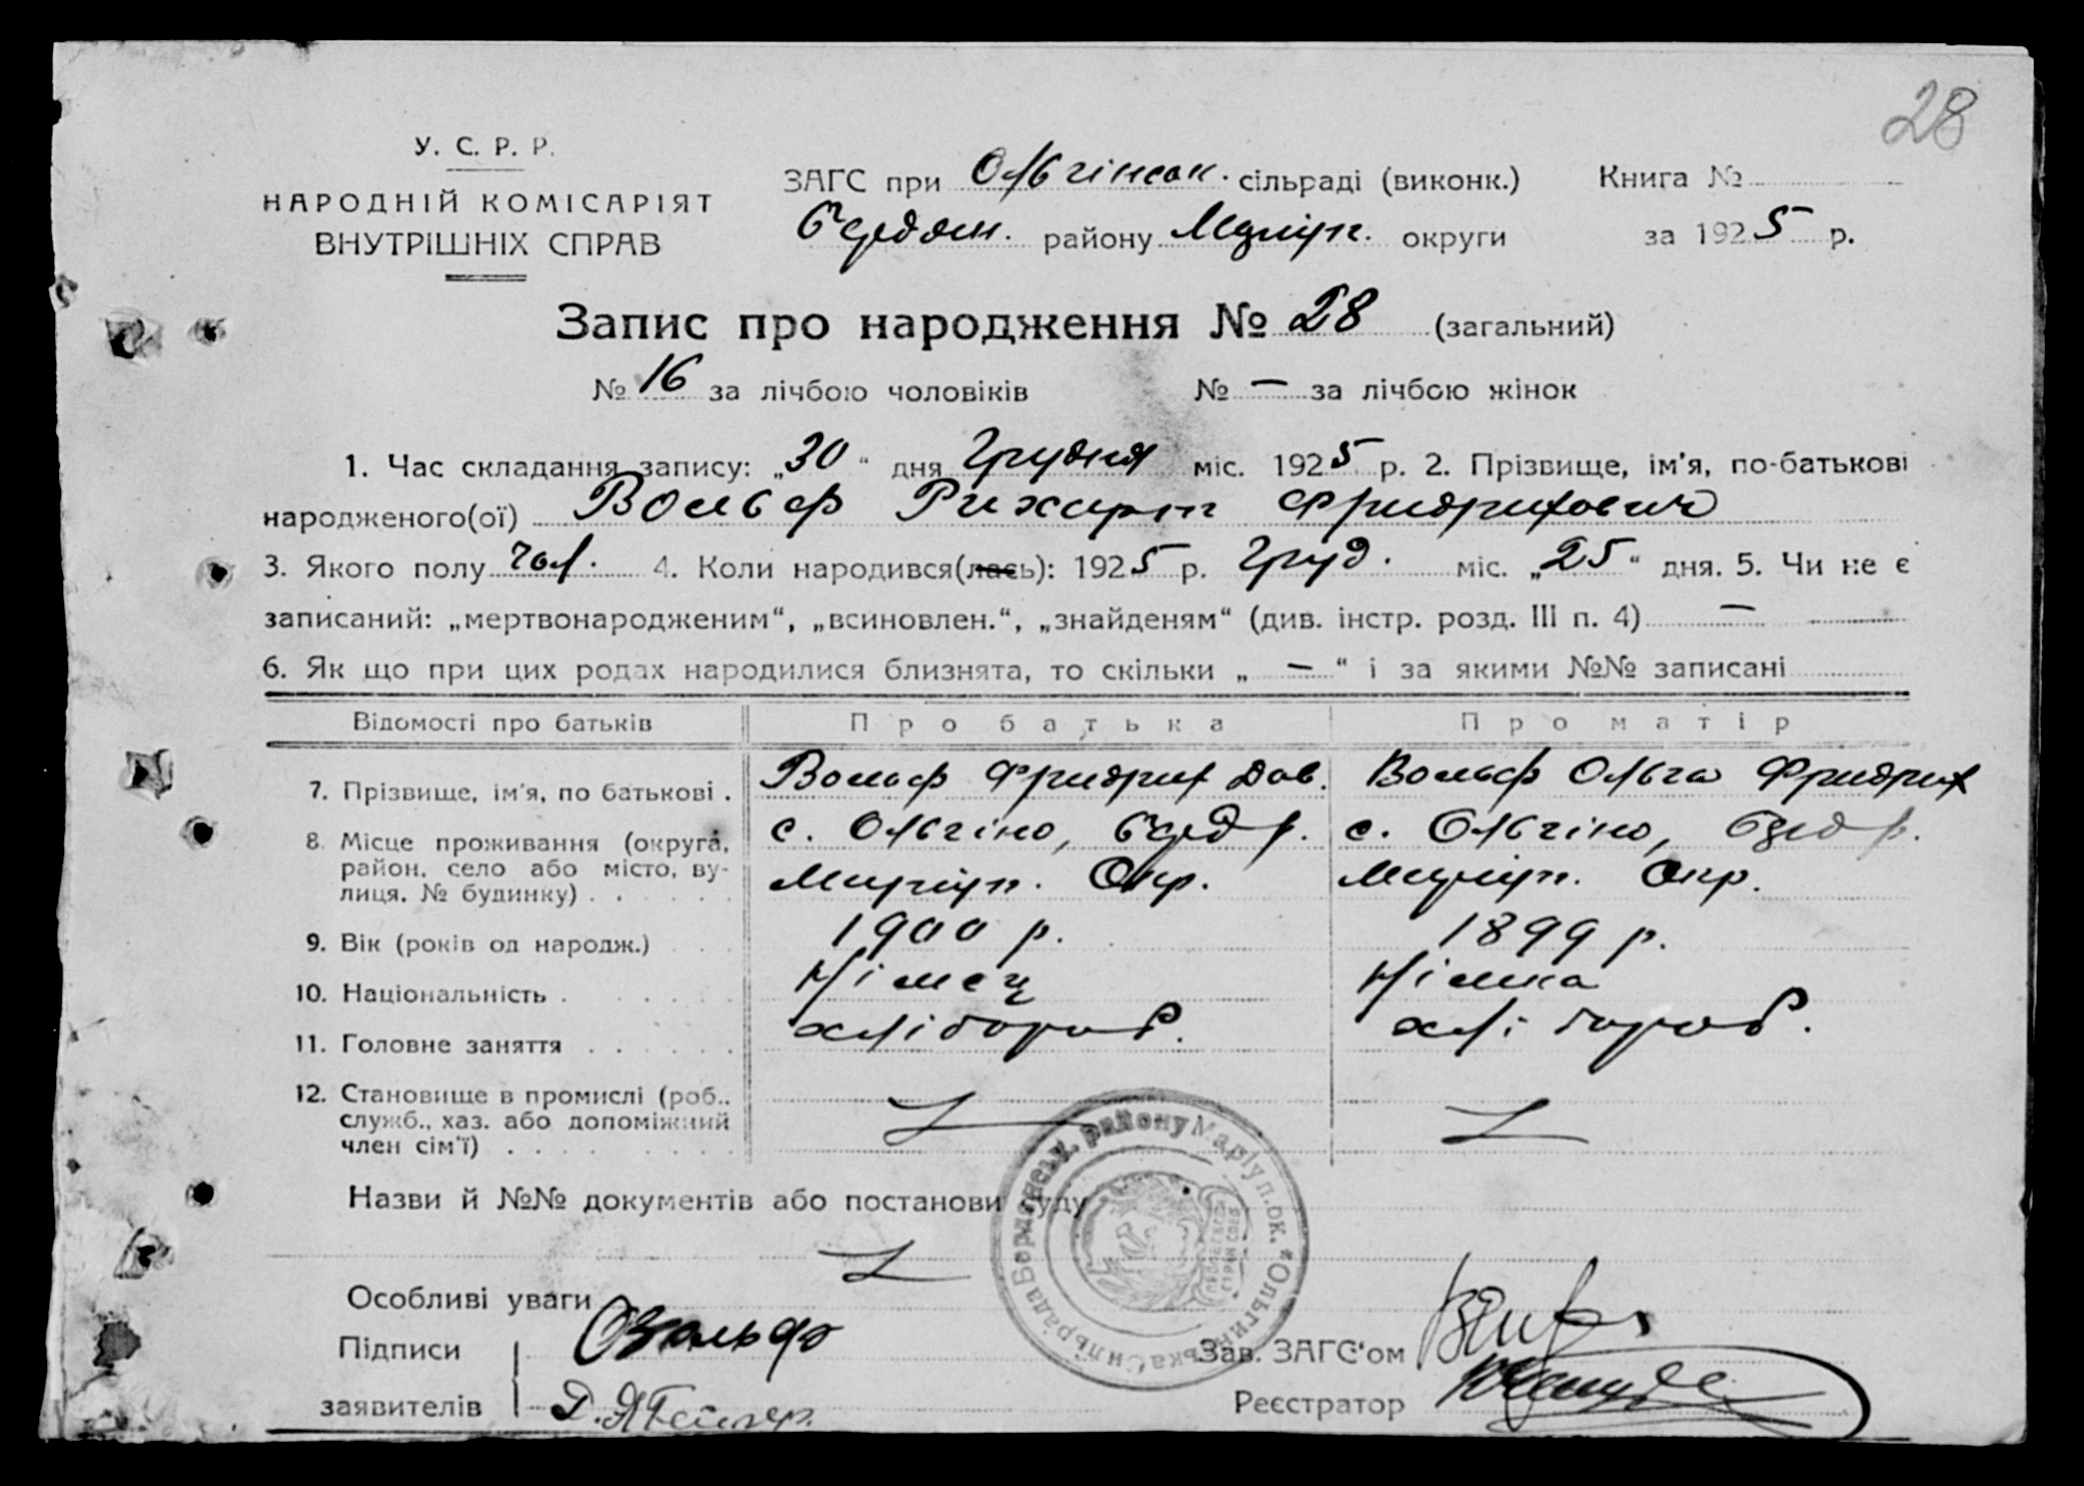 28
У. С. Р. Р.
НАРОДНІЙ КОМІСАРІЯТ
ВНУТРІШНІХ СПРАВ
ЗАГС при Ольгінськ. сільраді (виконк.) Книга №
району Маріуп. округи за 1925 р.
Запис про народження № 28 (загальний)
№ 16 за лічбою чоловіків № — за лічбою жінок
1. Час складання запису: „30“ дня Грудня міс. 1925 р. 2. Прізвище, ім'я, по-батькові
народженого(ої) Вольф Рихарт Фридрихович
3. Якого полу чол. 4. Коли народився(лась): 1925 р. Груд. міс. „25“ дня. 5. Чи не є
записаний: „мертвонародженим“, „всиновлен.“, „знайденям“ (див. інстр. розд. III п. 4) —
6. Як що при цих родах народилися близнята, то скільки „ — “ і за якими №№ записані
Відомості про батьків Про батька Про матір
7. Прізвище, ім'я, по батькові . Вольф Фридрих Дав. Вольф Ольга Фридрих
8. Місце проживання (округа, район, село або місто, вулиця, № будинку) . . . . . .
с. Ольгіно, р. Маріуп. Окр.
с. Ольгіно, р. Маріуп. Окр.
9. Вік (років од народж.) 1900 р. 1899 р.
10. Національність . Німец Німка
11. Головне заняття . . . . . . хлібороб. хлібороб.
12. Становище в промислі (роб.. служб., хаз. або допоміжний член сім'ї) . . . .
Назви й №№ документів або постанови суду
Особливі уваги
Підписи
заявителів
Зав. ЗАГС'ом
Реєстратор
Ольгинська Сільрада Бердянськ. району Маріуп. ок.